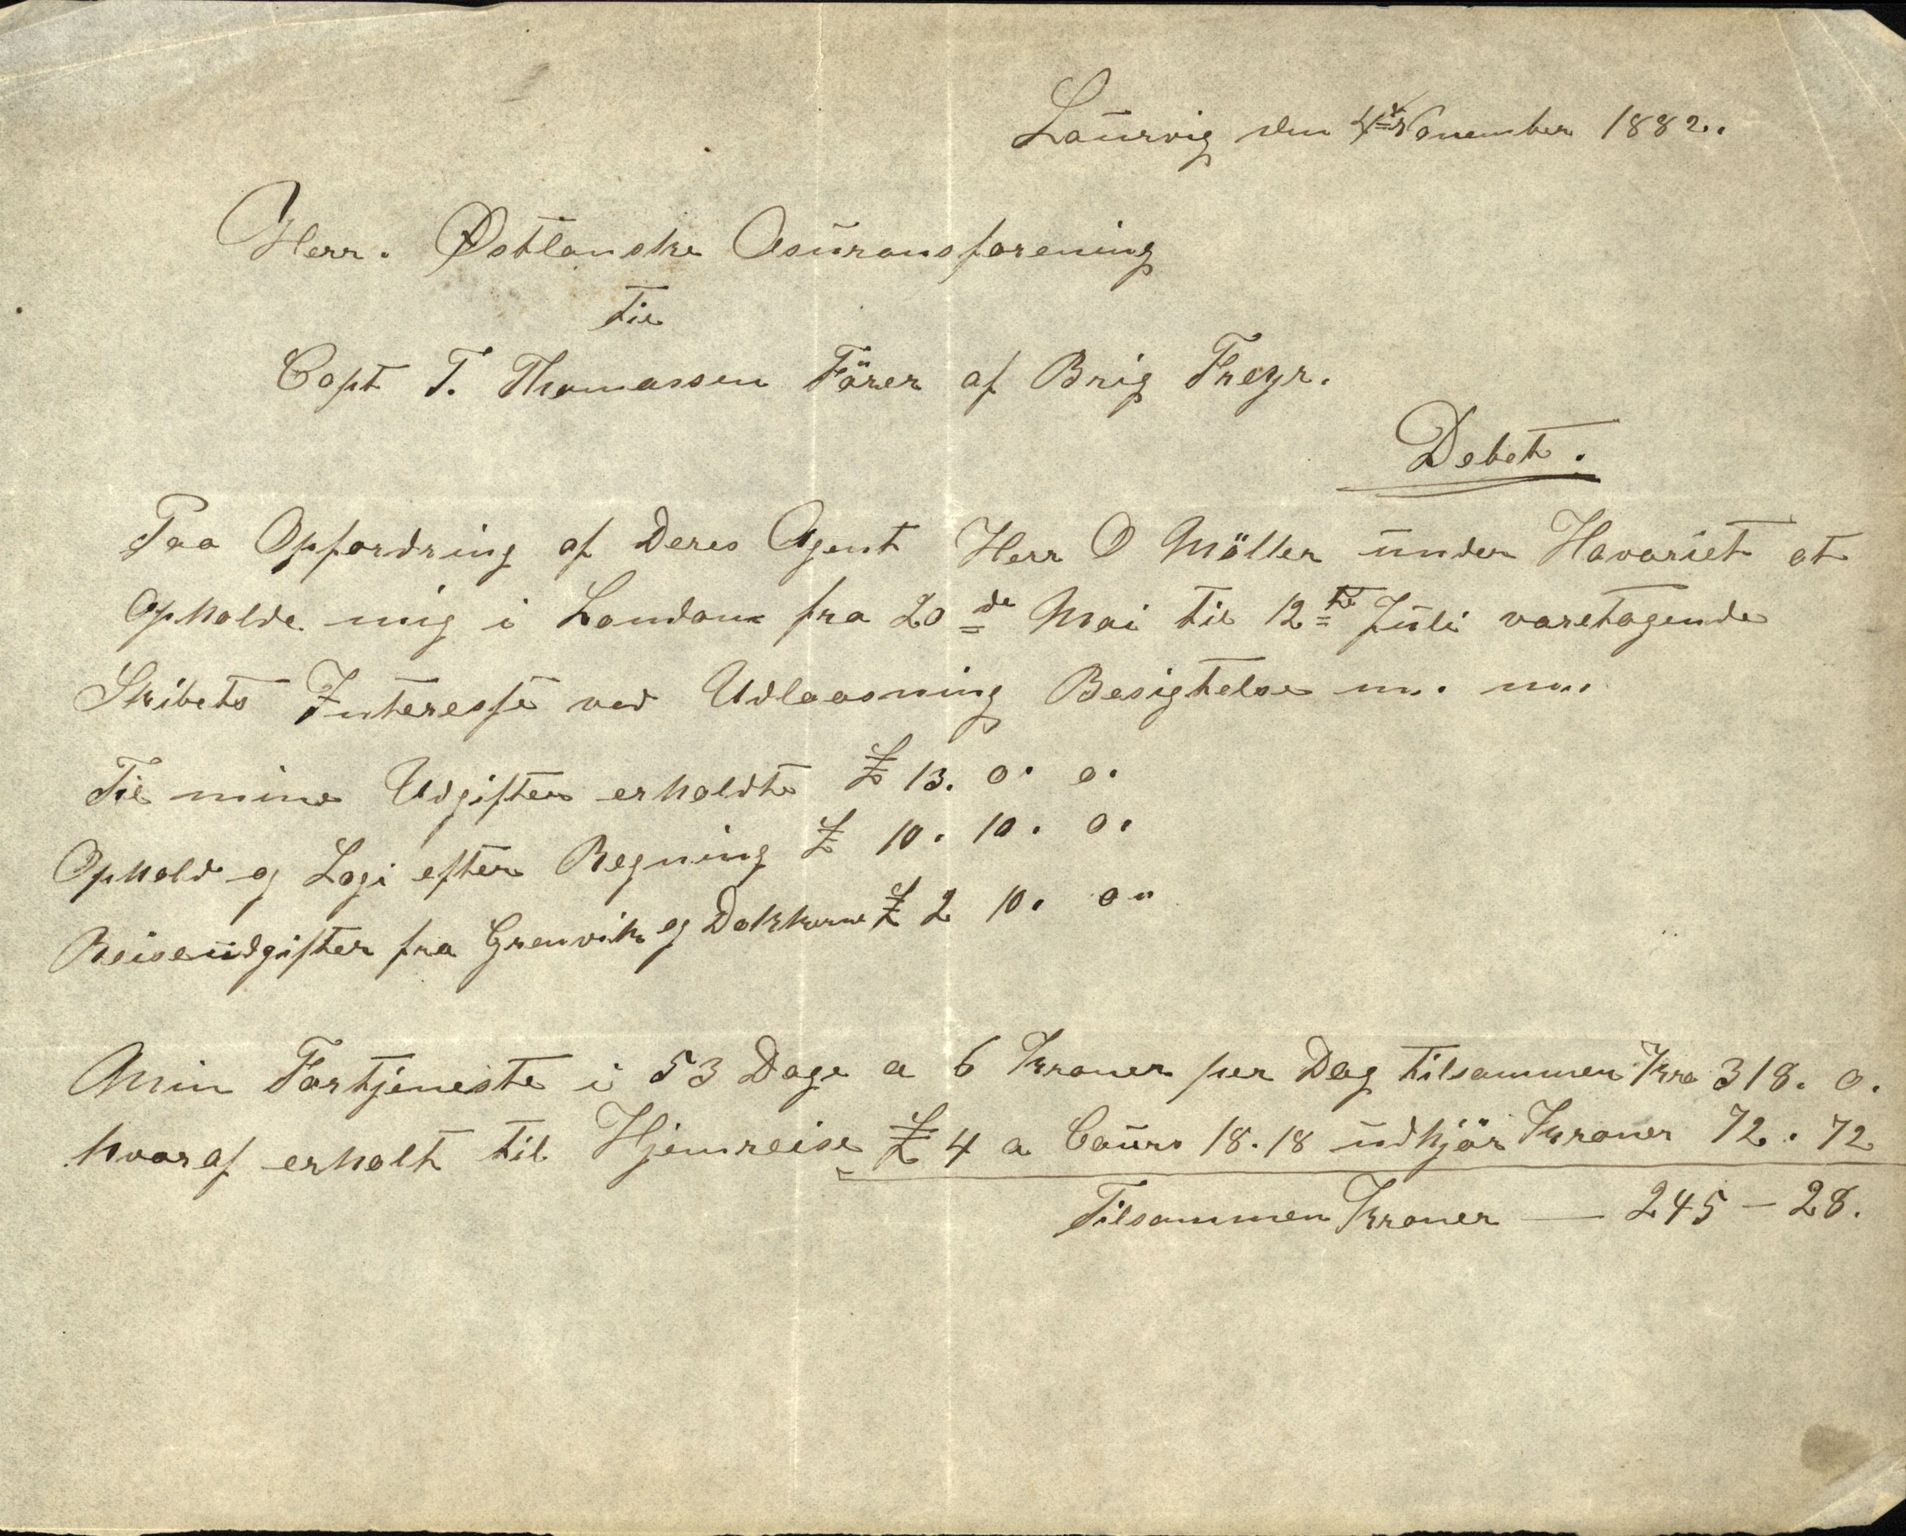 Laurvig den 4de November 1882.
Herr. Østlanske Asuransforening
til
Capt T. Thomassen Förer af Brig Freyr.
Debet.
Paa Opfordring af Deres Agent Herr O Möller under Havariet at
opholde mig i London fra 20de Mai til 12te Juli varetagende
Skibets Interesse ved Udlaasning Besigtelse m. m.
Til mine Udgifter erholdt £ 13. 0. 0.
Ophold og Logi efter Regning £ 10. 10. 0.
Reiseudgifter fra Grenvik og Dokkerne £ 2 10. 0.
Min Fortjeneste i 53 Dage a 6 Kroner per Dag tilsammen Kro 318. 0.
hvoraf erholt til Hjemreise £ 4 a Cours 18.18 udkjör Kroner 72. 72
Tilsammen Kroner — 245 - 28.